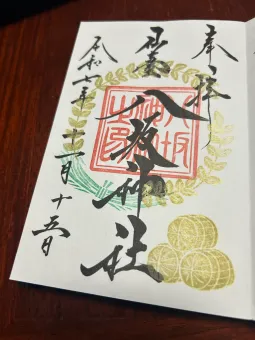 奉拝
八坂神社
八坂
神社
之印
令和七年 十一月十五日